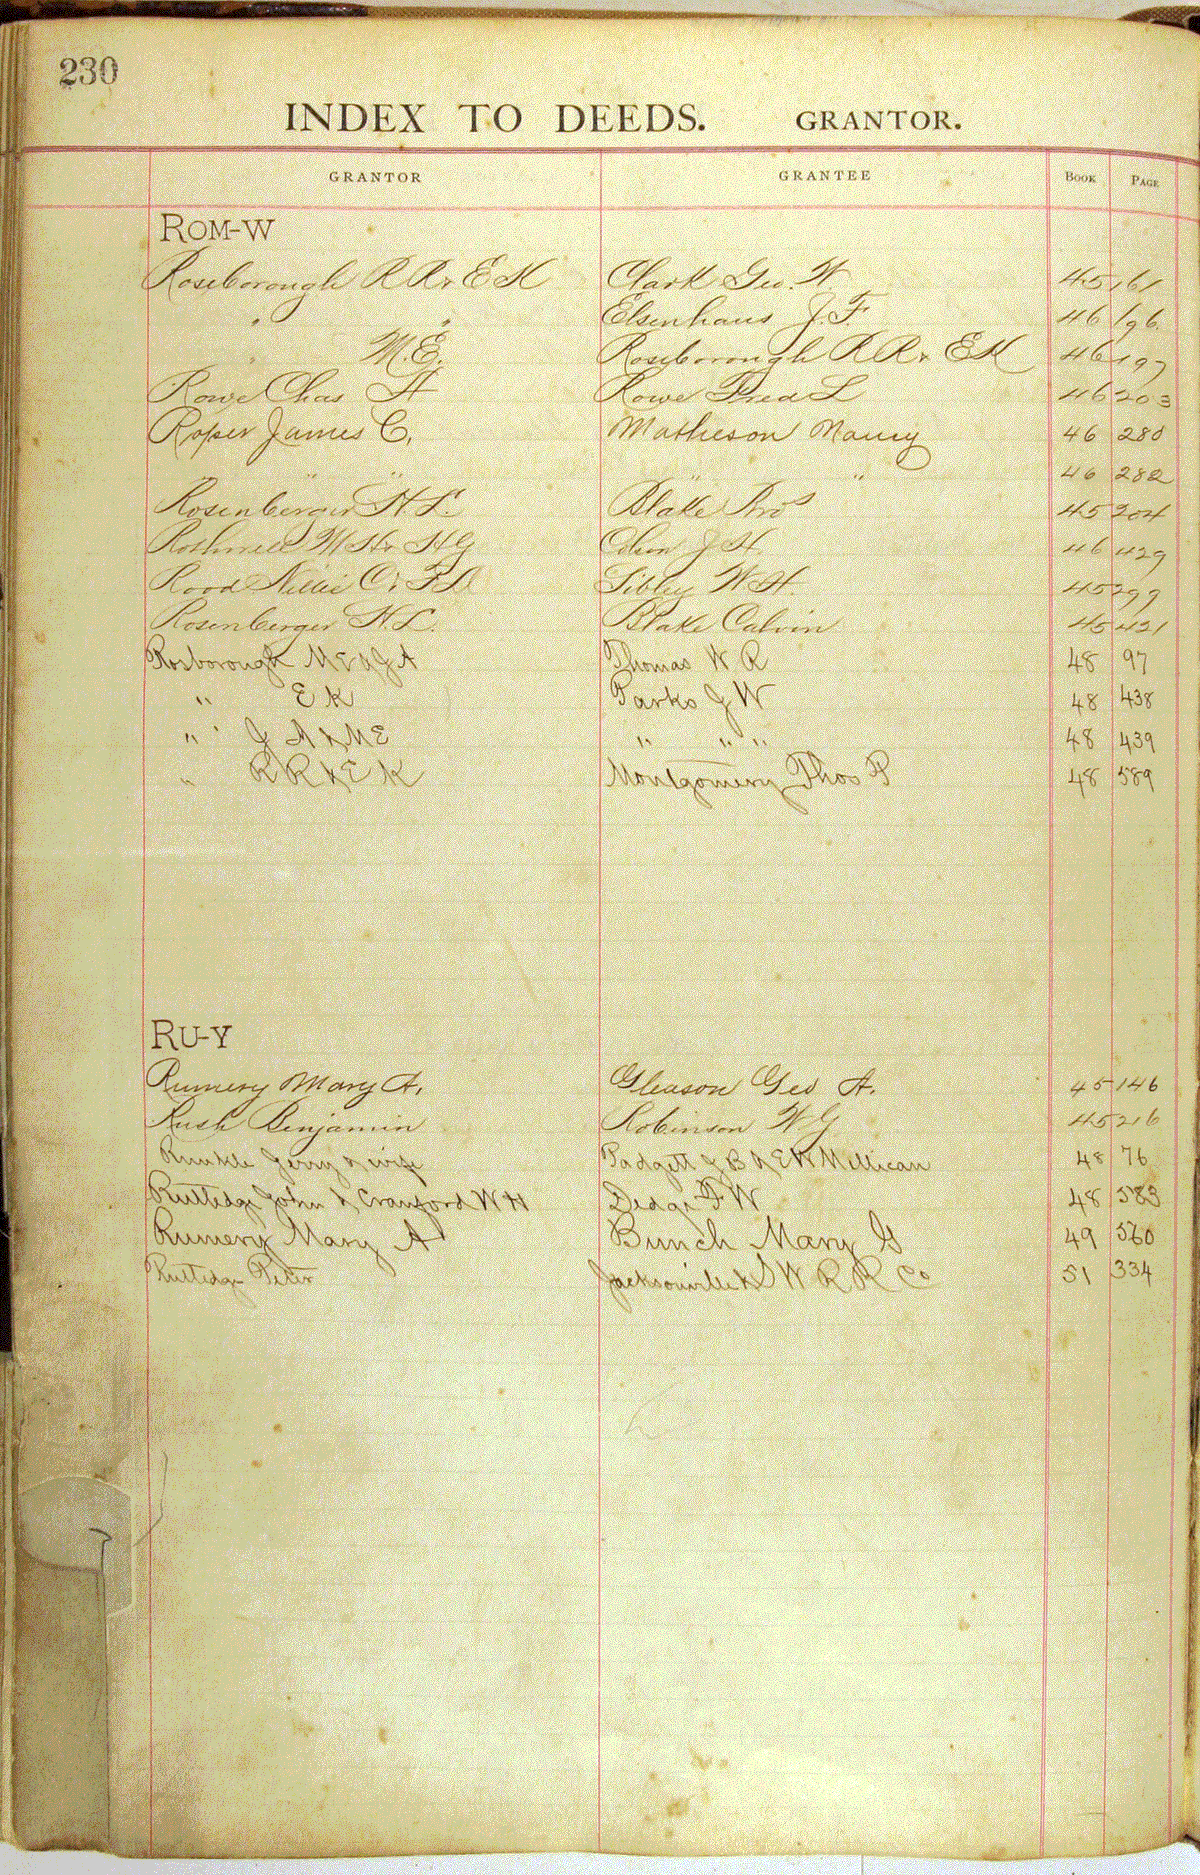 230
INDEX TO DEEDS. GRANTOR.
GRANTOR GRANTEE BOOK PAGE
ROM-W
Roseborough R R & E K Clark Geo. W. 45 161
" " Elsenhaus J. F. 46 196
" M. E. Roseborough R R & E K 46 197
Rowe Chas H Rowe Fred L 46 203
Roper James C. Matheson Nancy 46 280
" " " " 46 282
Rosenberger H. L. Blake Bros 45 204
Rothwell W H & H G J H 46 429
Rood Nellie C & F D Sibley W. H. 45 299
Rosenberger H. L. Blake Calvin 45 421
Rosborough M E & J A Thomas W R 48 97
" E K Parks J W 48 438
" J A & M E " " " 48 439
" R R & E K Montgomery Thos P 48 589
RU-Y
Rumery Mary A. Gleason Geo A. 45 146
Rush Benjamin Robinson W G 45 216
Runkle Jerry & wife Padgett J B & E W Millican 48 76
Rutledge John & Cranford W H Dedge F W 48 583
Rumery Mary A Bunch Mary G 49 560
Rutledge Peter Jacksonville & S W R R Co 51 334